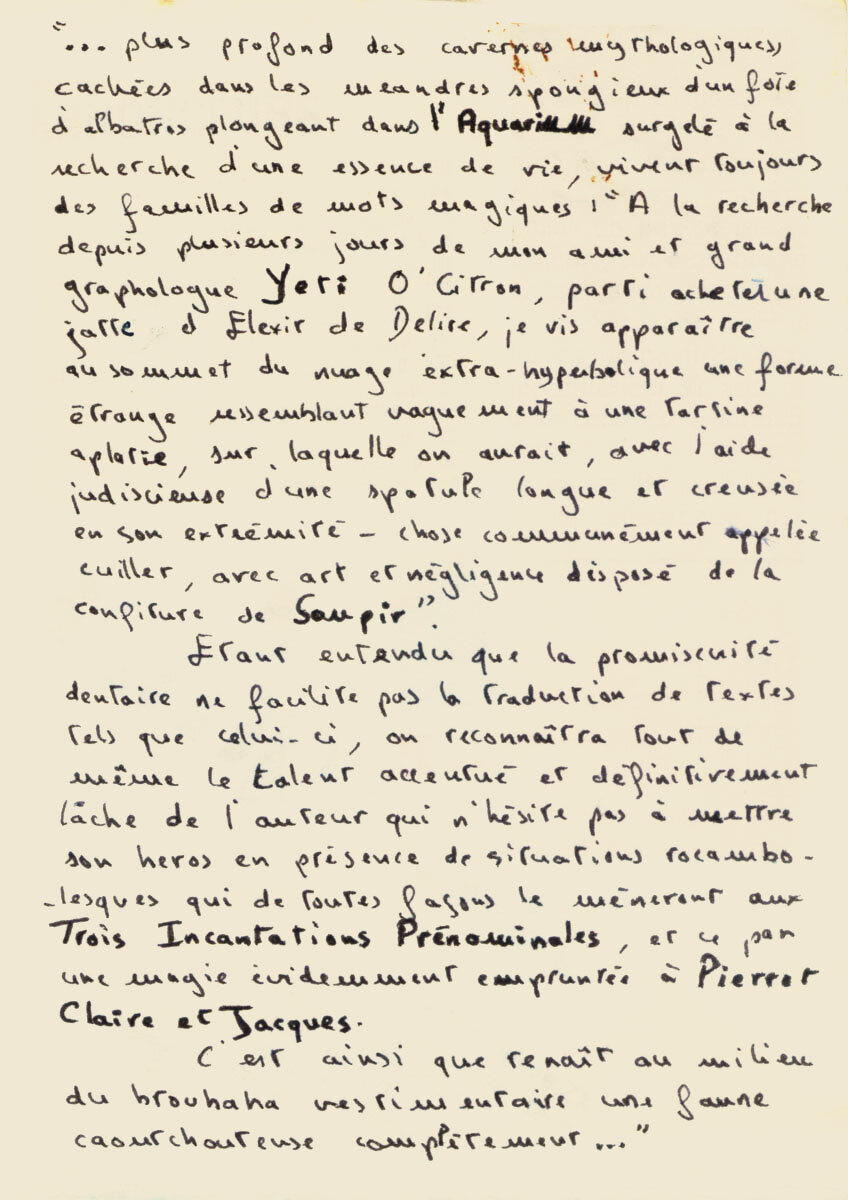 "... plus profond des cavernes mythologiques,
cachées dans les meandres spongieux d'un foie
d'albatros plongeant dans l'Aquarium surgelé à la
recherche d'une essence de vie, vivent toujours
des familles de mots magiques !" A la recherche
depuis plusieurs jours de mon ami et grand
graphologue Yeti O'Citron, parti acheter une
jatte d'Elexir de Delire, je vis apparaître
au sommet du nuage extra-hyperbolique une forme
étrange ressemblant vaguement à une tartine
aplatie, sur laquelle on aurait, avec l'aide
judiscieuse d'une spatule longue et creusée
en son extrémité - chose communément appelée
cuiller, avec art et négligence disposé de la
confiture de Soupir".
Etant entendu que la promiscuité
dentaire ne facilite pas la traduction de textes
tels que celui-ci, on reconnaîtra tout de
même le talent accentué et définitivement
lâche de l'auteur qui n'hésite pas à mettre
son heros en présence de situations rocambo-
-lesques qui de toutes façons le mèneront aux
Trois Incantations Prénominales, et ce par
une magie évidemment empruntée à Pierrot
Claire et Jacques.
C'est ainsi que renaît au milieu
du brouhaha vestimentaire une faune
caoutchouteuse complètement..."